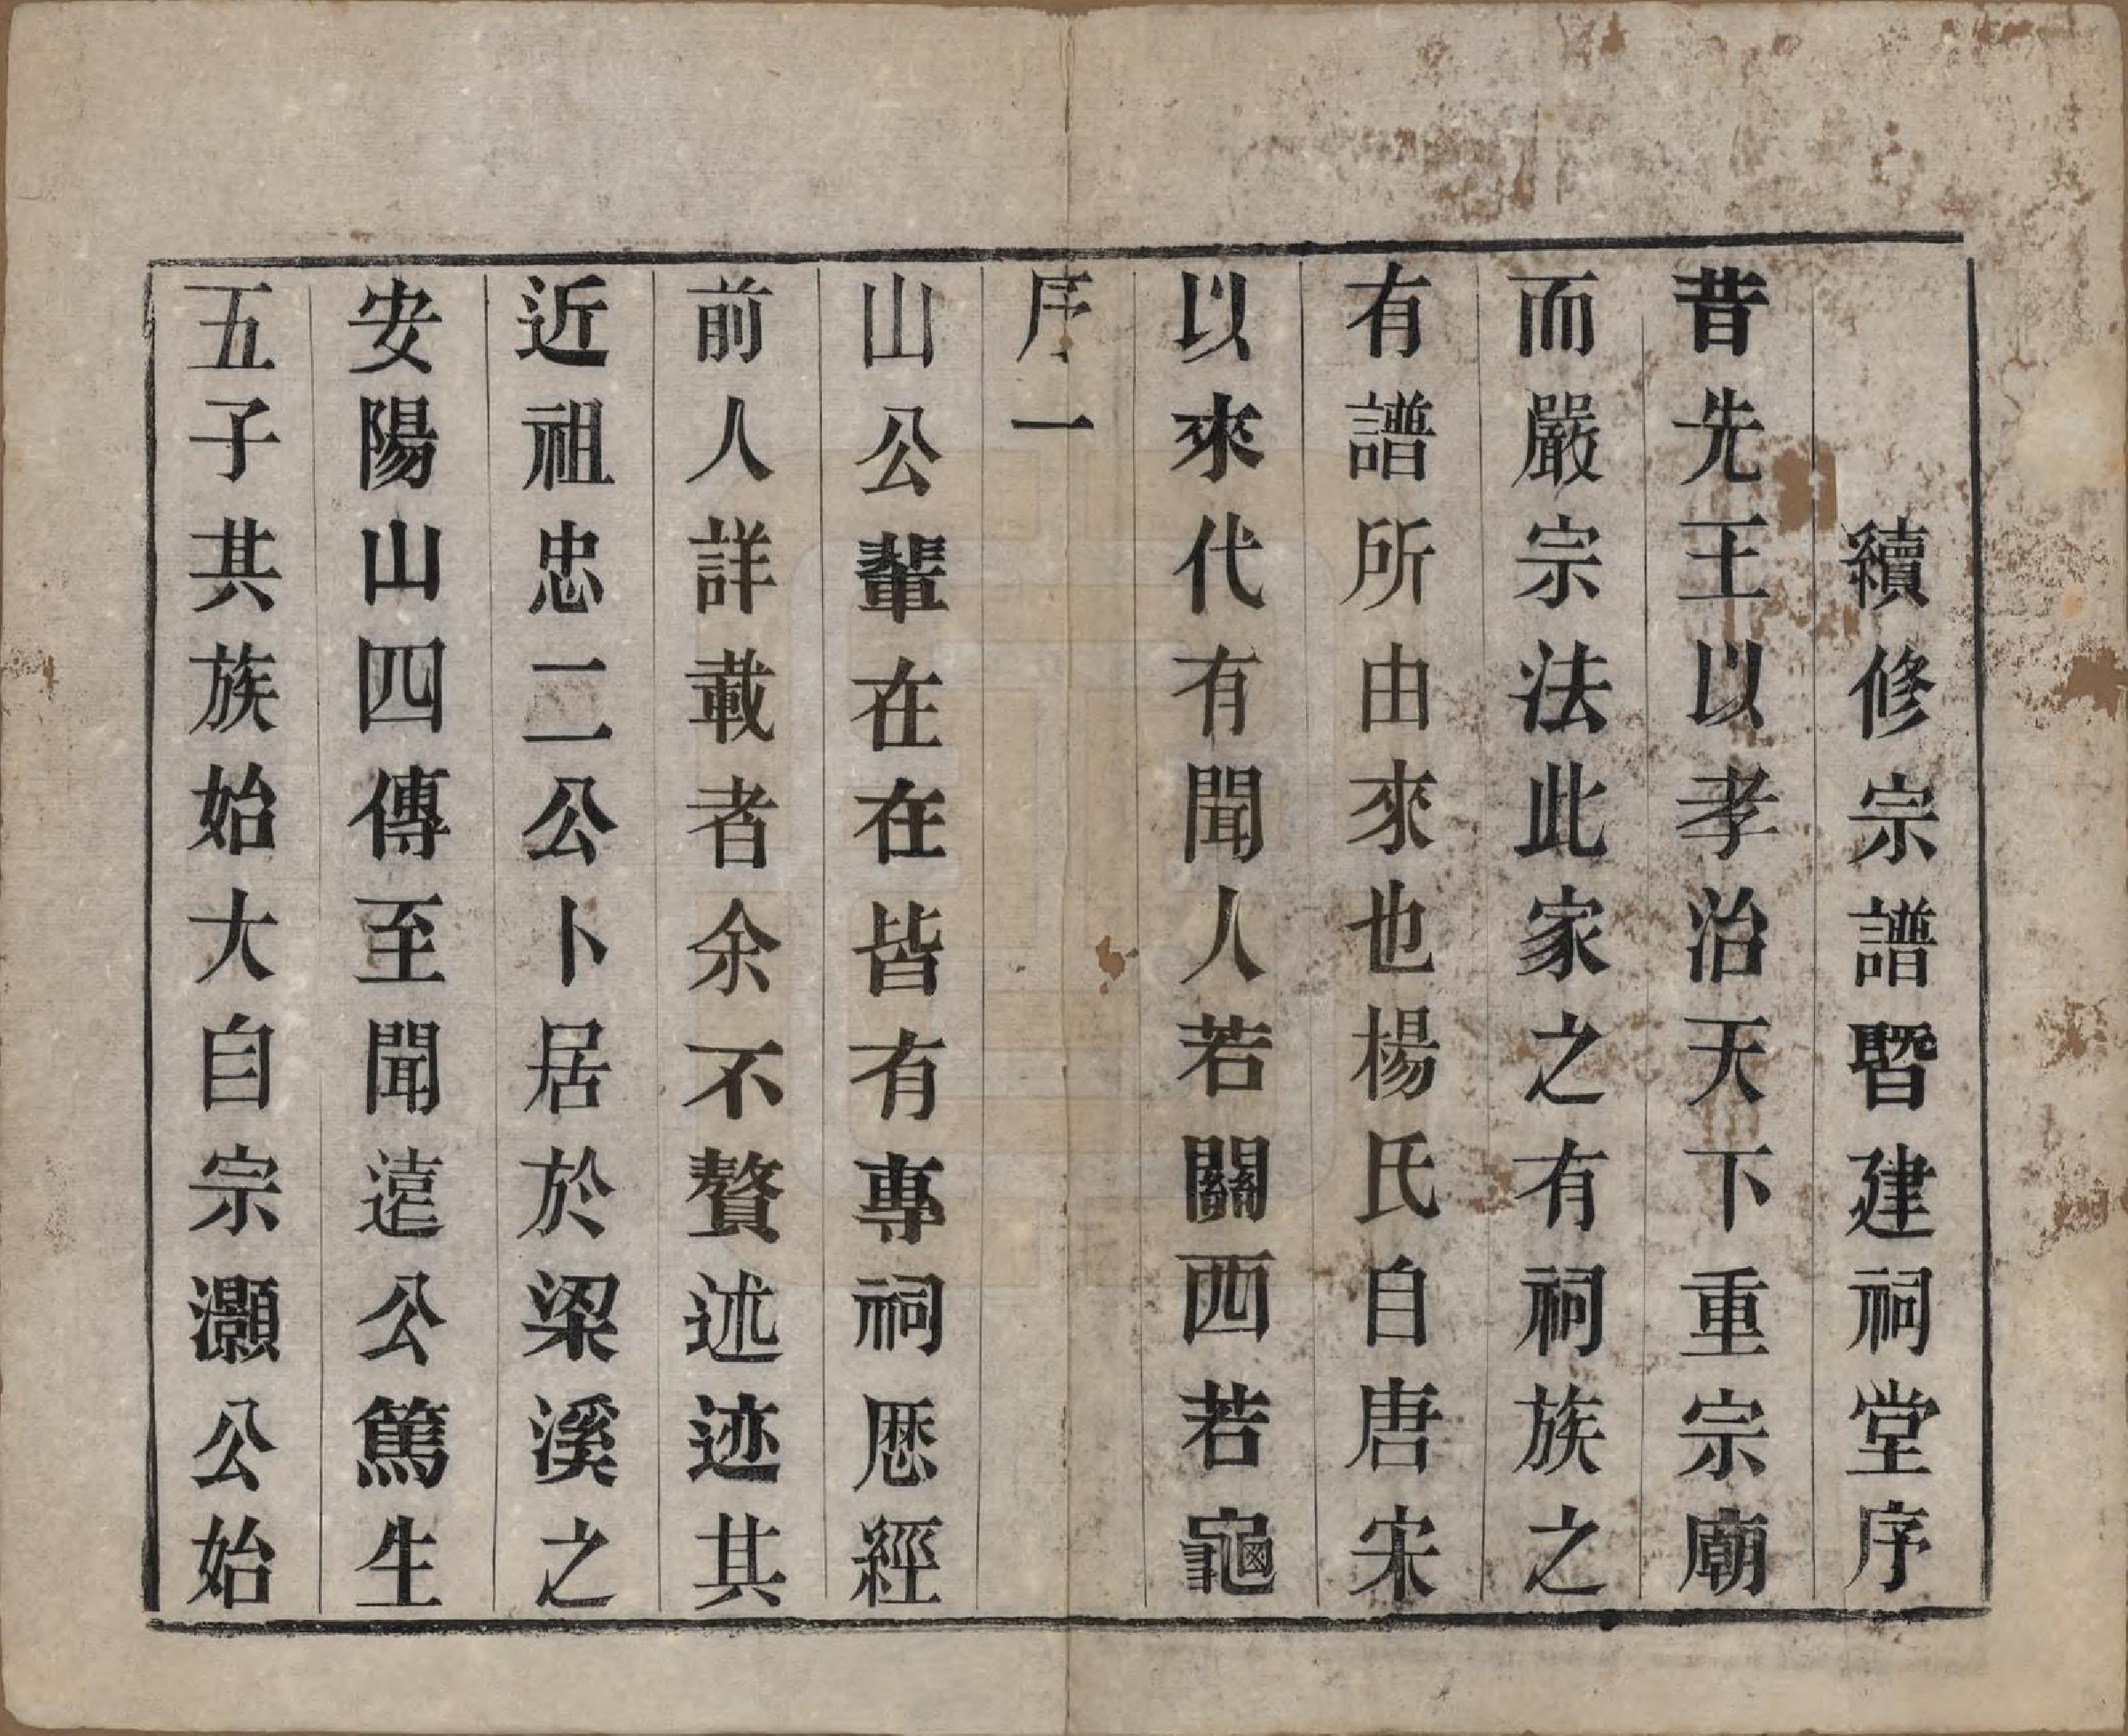 續修宗譜暨建祠堂序
昔先王以孝治天下重宗廟
而嚴宗法此家之有祠族之
有譜所由來也楊氏自唐宋
以來代有聞人若關西若龜
序一
山公輩在在皆有專祠厯經
前人詳載者余不贅述迹其
近祖忠二公卜居於梁溪之
安陽山四傳至聞遠公篤生
五子其族始大自宗灝公始